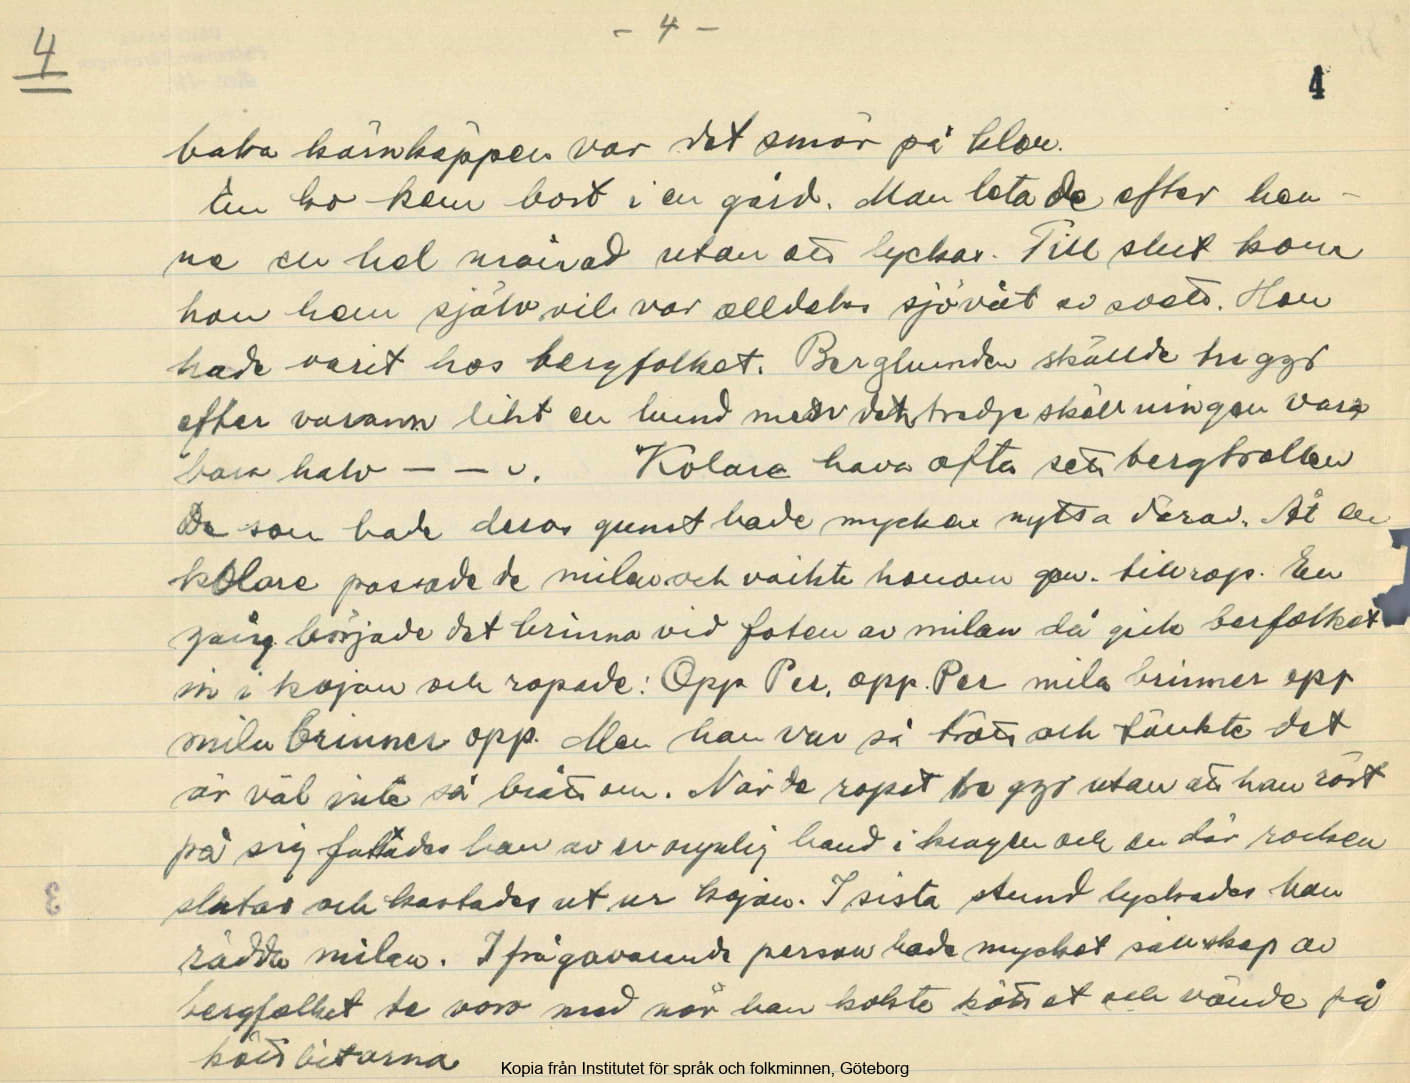 - 4 -
4
4
baka kärnkäppen var det smör på klon.
En ko kom bort i en gård. Man letade efter hen-
ne en hel månad utan att lyckas. Till slut kom
hon hem själv och var alldeles sjövåt av svett. Hon
hade varit hos bergfolket. Berghunden skällde tre ggr
efter varann likt en hund men den tredje skällningen var
bara halv — — ᴗ. Kolare hava ofta sett bergtrollen
De som hade deras gunst hade mycken nytta därav. Åt en
kolare passade de milan och väckte honom gm. tillrop. En
gång började det brinna vid foten av milan då gick berfolket
in i kojan och ropade: Opp Per, opp. Per mila brinner opp
mila brinner opp. Men han var så trött och tänkte det
är väl inte så brått om. När de ropat tre ggr utan att han rört
på sig fattades han av en osynlig hand i kragen och en där rocken
slutar och kastades ut ur kojan. I sista stund lyckades han
rädda milan. Ifrågavarande person hade mycket sällskap av
bergfolket de voro med när han kokte köttet och vände på
köttbitarna
Kopia från Institutet för språk och folkminnen, Göteborg